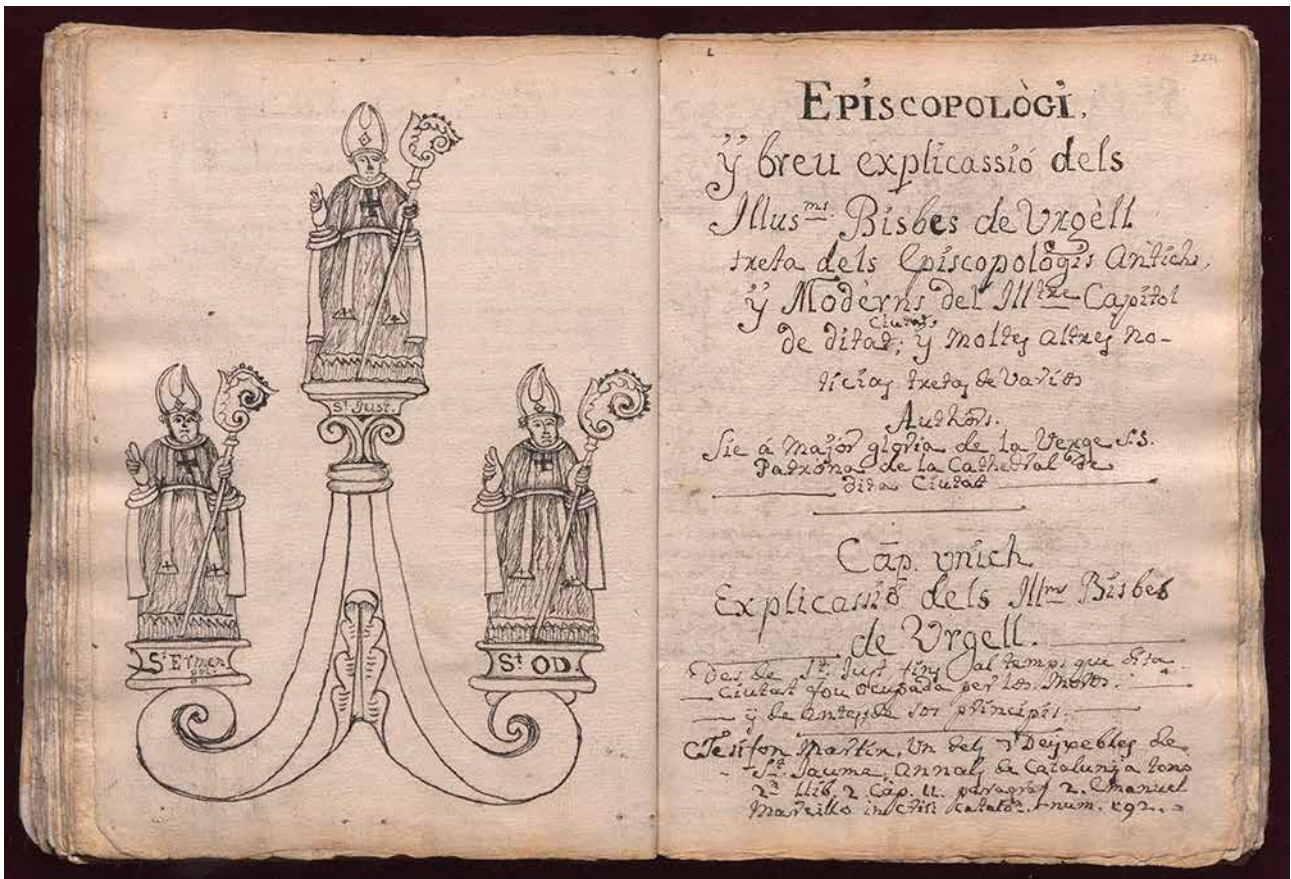 St. Just.
St Ermen
gol.
St OD.
224
EPISCOPOLÒGI,
ÿ breu explicassió dels
Illus.ms Bisbes de Urgèll
treta dels Episcopològis Antichs,
ÿ Modèrns del Illtre Capitol
de dita Ciutat; ÿ moltes altres no-
ticias tretas de varios
Authòrs.
Sie á major gloria de la Verge SS.
Patrona de la Cathedral de
dita Ciutat
Cāp. vnich
Explicassió dels Illms Bisbes
de Vrgell.
Des de St. Just fins al temps que dita
Ciutat fou ocupada per los Moros.
y de antes de sos principis.
CTesifon Martir, Un dels 7 Dexebles de
St. Jaume, Annals de Catalunya tomo
2n llib. 2 Cap. 11. paragraf 2. Emanuel
Marcillo in crisi Catalo. num. 192.